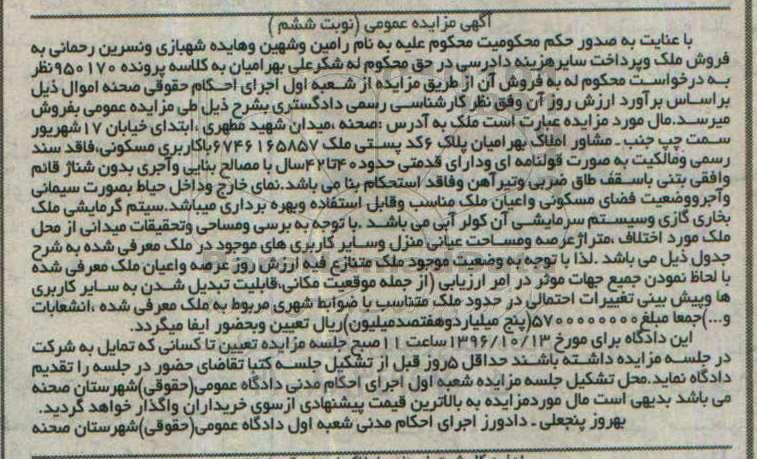 آگهی مزایده عمومی (نوبت ششم )
با عنایت به صدور حکم محکومیت محکوم علیه به نام رامین وشهین وهایده شهبازی ونسرین رحمانی به
فروش ملک وپرداخت سایرهزینه دادرسی در حق محکوم له شکرعلی بهرامیان به کلاسه پرونده ۹۵۰۱۷۰نظر
به درخواست محکوم له به فروش آن از طریق مزایده از شعبه اول اجرای احکام حقوقی صحنه اموال ذیل
براساس برآورد ارزش روز آن وفق نظر کارشناسی رسمی دادگستری بشرح ذیل طی مزایده عمومی بفروش
میرسد.مال مورد مزایده عبارت است ملک به آدرس :صحنه ،میدان شهید مطهری ،ابتدای خیابان ۱۷شهریور
سمت چپ جنب ـ مشاور املاک بهرامیان پلاک ۶کد پستی ملک ۶۷۴۶۱۶۵۸۵۷باکاربری مسکونی،فاقد سند
رسمی ومالکیت به صورت قولنامه ای ودارای قدمتی حدود۴۰تا۴۲سال با مصالح بنایی وآجری بدون شناژ قائم
وافقی بتنی باسقف طاق ضربی وتیرآهن وفاقد استحکام بنا می باشد.نمای خارج وداخل حیاط بصورت سیمانی
وآجرووضعیت فضای مسکونی واعیان ملک مناسب وقابل استفاده وبهره برداری میباشد.سیتم گرمایشی ملک
بخاری گازی وسیستم سرمایشی آن کولر آبی می باشد .با توجه به برسی ومساحی وتحقیقات میدانی از محل
ملک مورد اختلاف ،متراژعرصه ومساحت عیانی منزل وسایر کاربری های موجود در ملک معرفی شده به شرح
جدول ذیل می باشد .لذا با توجه به وضعیت موجود ملک متنازع فیه ارزش روز عرصه واعیان ملک معرفی شده
با لحاظ نمودن جمیع جهات موثر در امر ارزیابی (از جمله موقعیت مکانی،قابلیت تبدیل شدن به سایر کاربری
ها وپیش بینی تغییرات احتمالی در حدود ملک متناسب با ضوابط شهری مربوط به ملک معرفی شده ،انشعابات
و...)جمعا مبلغ۵۷۰۰۰۰۰۰۰۰(پنج میلیاردوهفتصدمیلیون)ریال تعیین وبحضور ایفا میگردد.
این دادگاه برای مورخ ۱۳۹۶/۱۰/۱۳ساعت ۱۱صبح جلسه مزایده تعیین تا کسانی که تمایل به شرکت
در جلسه مزایده داشته باشند حداقل ۵روز قبل از تشکیل جلسه کتبا تقاضای حضور در جلسه را تقدیم
دادگاه نماید.محل تشکیل جلسه مزایده شعبه اول اجرای احکام مدنی دادگاه عمومی(حقوقی)شهرستان صحنه
می باشد بدیهی است مال موردمزایده به بالاترین قیمت پیشنهادی ازسوی خریداران واگذار خواهد گردید.
بهروز پنجعلی ـ دادورز اجرای احکام مدنی شعبه اول دادگاه عمومی(حقوقی)شهرستان صحنه